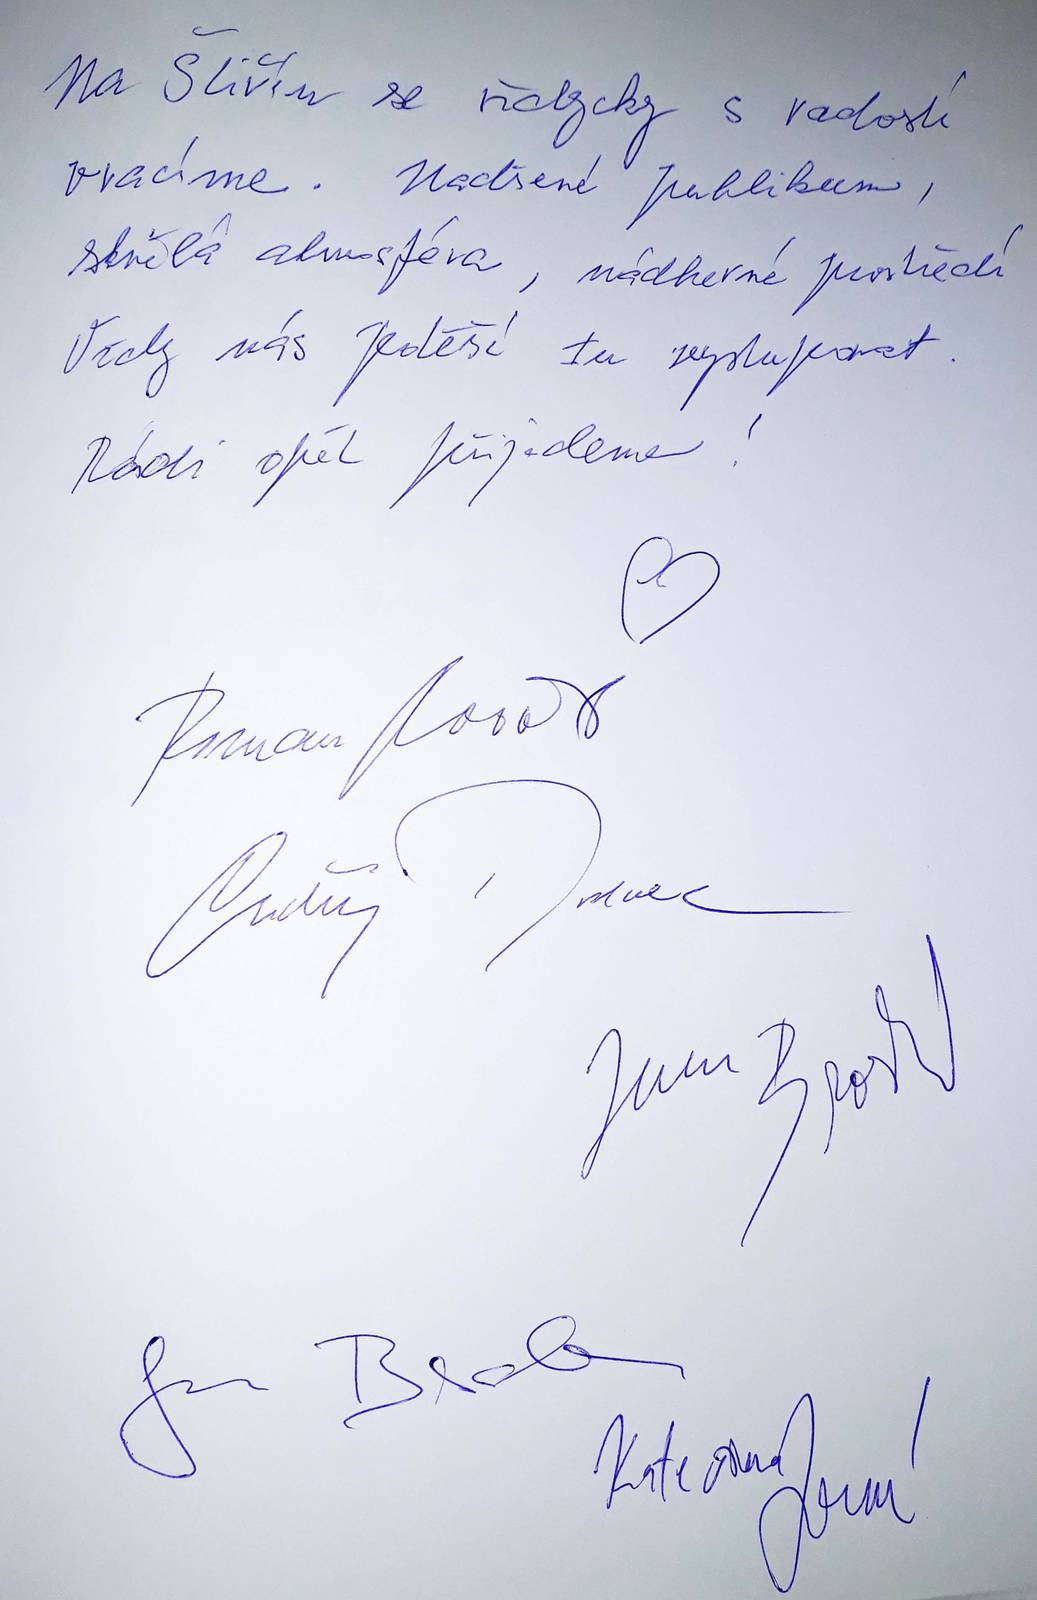 Na Šlivín se vždycky s radostí
vracíme. Nadšené publikum,
skvělá atmosféra, nádherné prostředí
Vždy nás potěší tu vystupovat.
Rádi opět přijedeme!
Roman
Ondřej
Jan
Jan
Kateřina